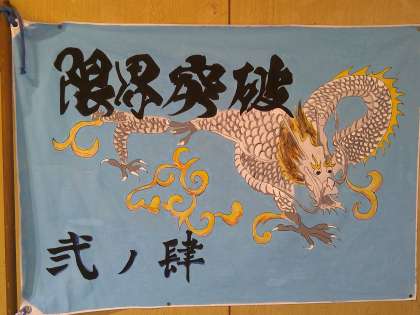 限界突破
弐ノ肆